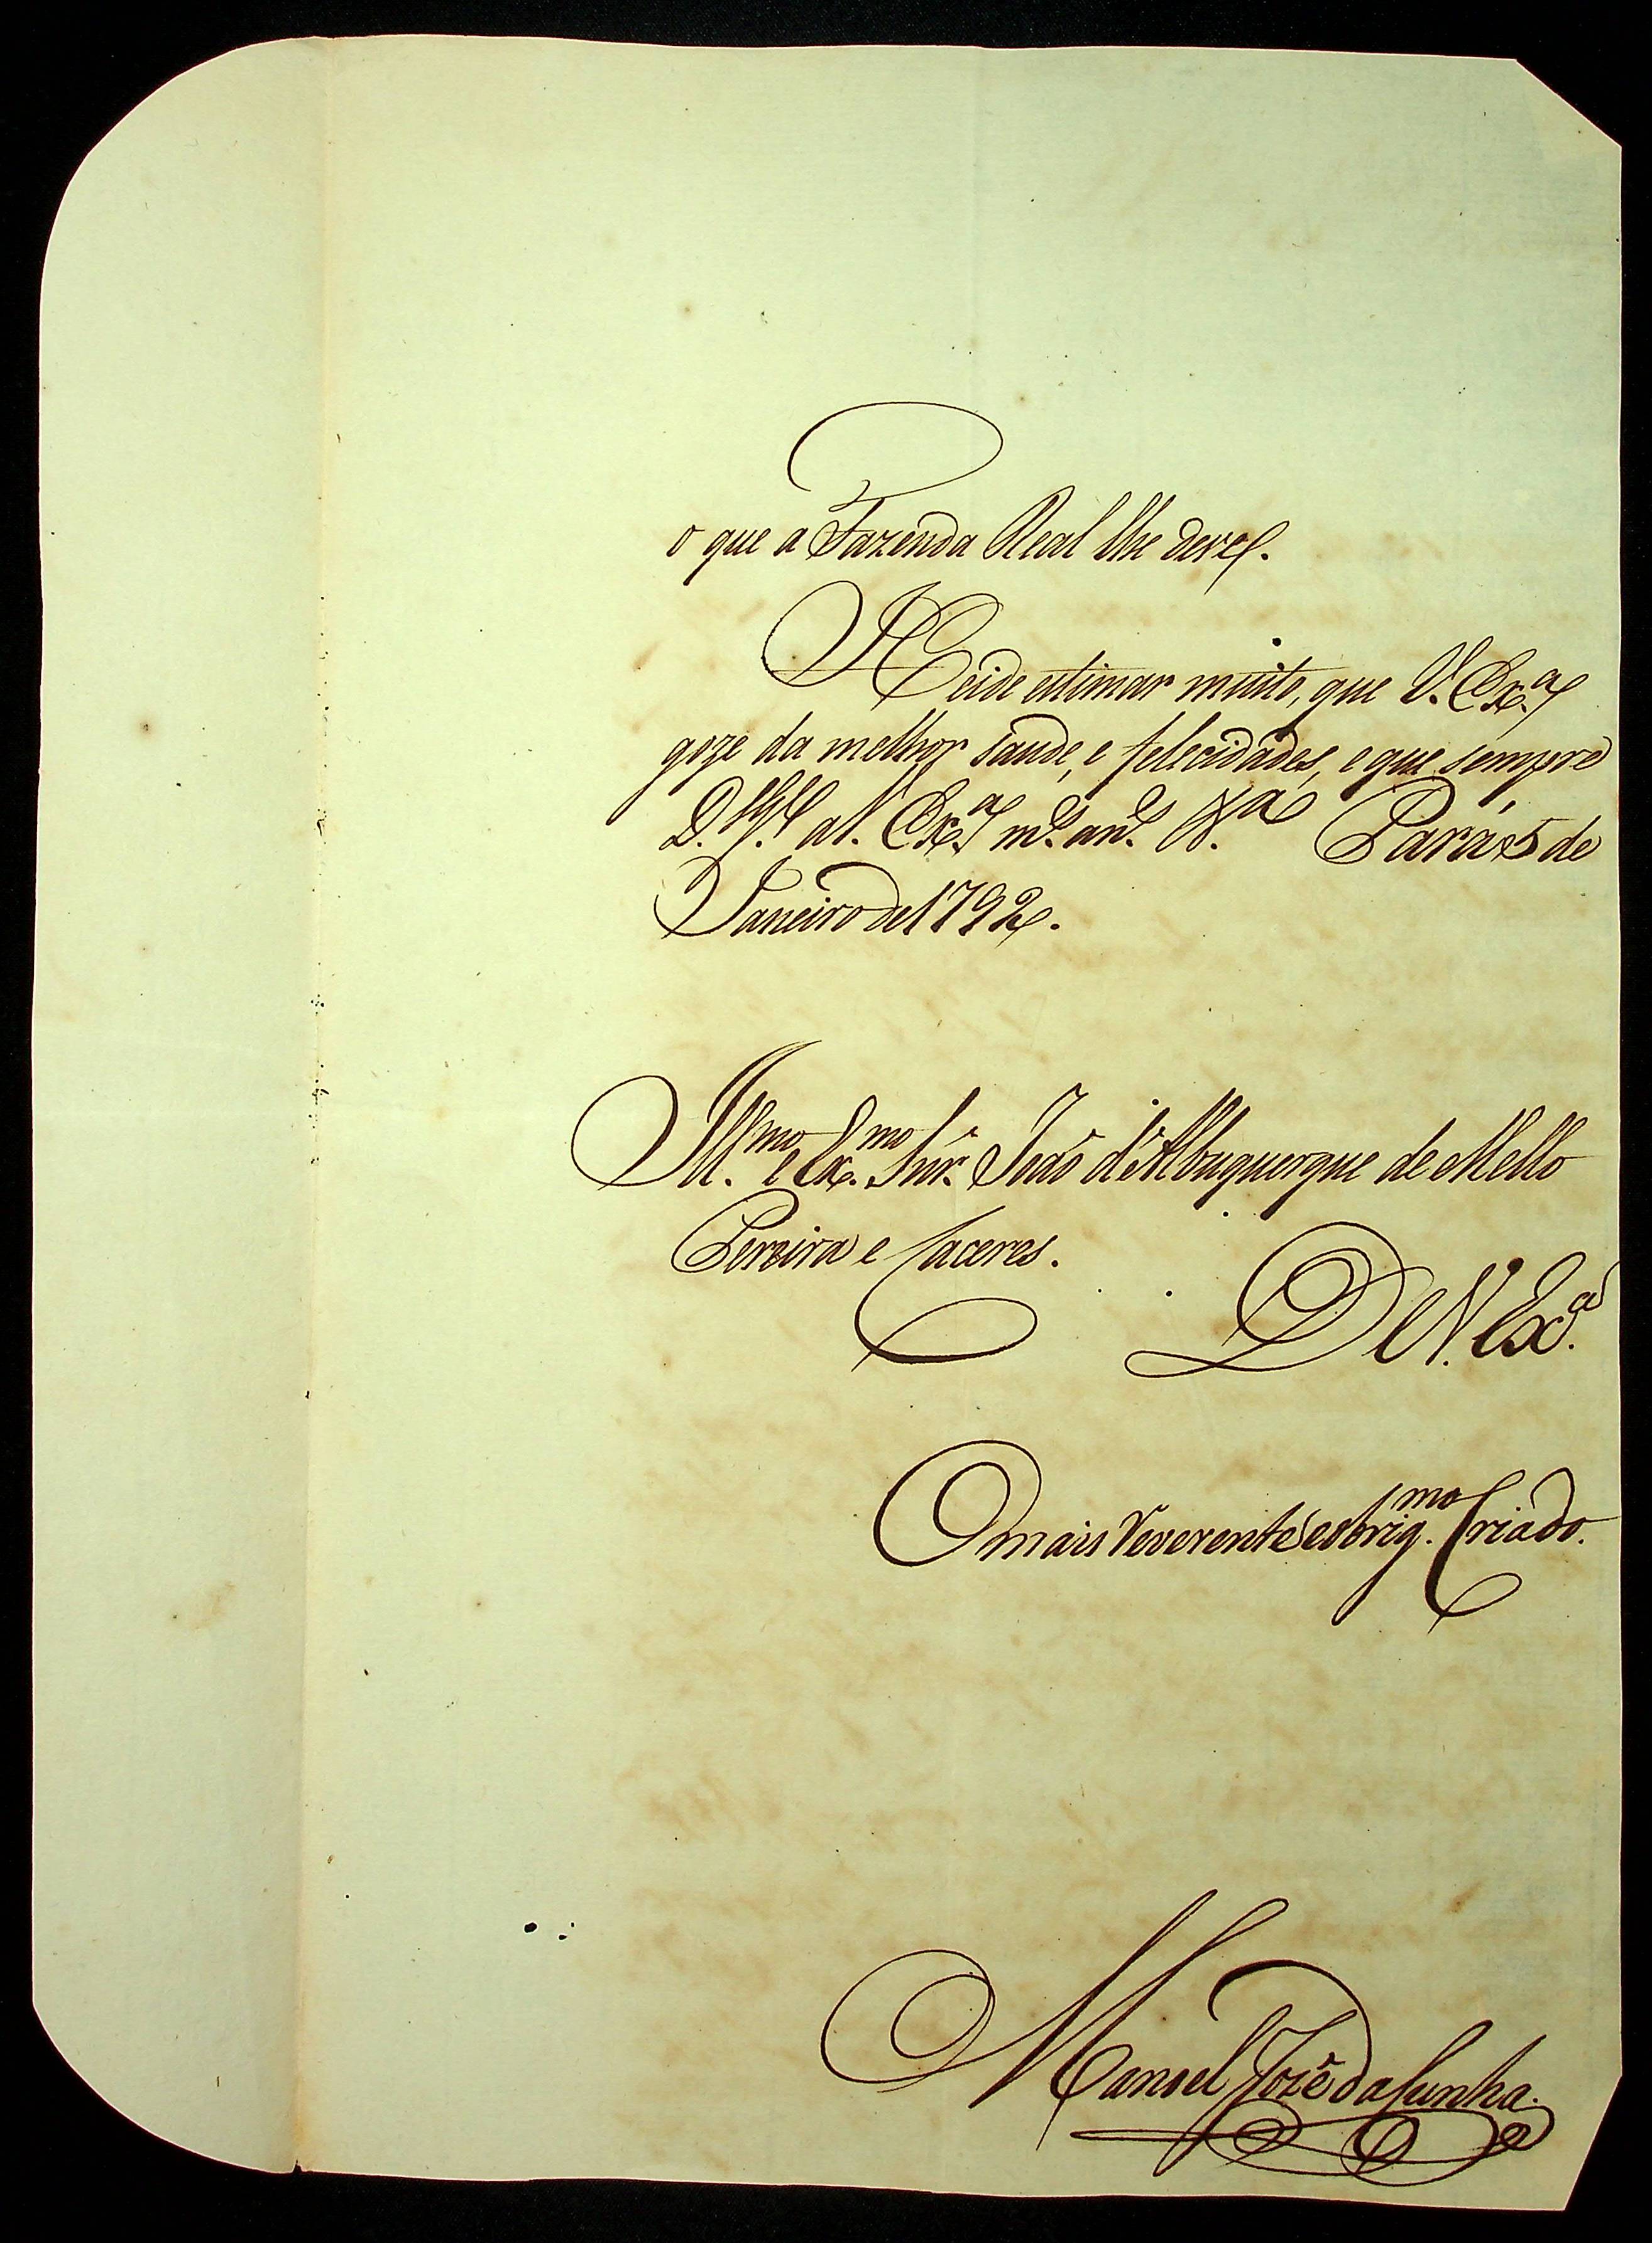 o que a Fazenda Real lhe deve.
Heide estimar muito, que V. Ex.ª
goze da melhor saude, e felecidades, e que sempre
D. g.e a V. Ex.ª m.s an.s &.ª Pará 5 de
Janeiro de 1792.
Ill.mo e Ex.mo Snr. João d'Albuquerque de Mello
Pereira e Caceres.
De V. Ex.ª
O mais reverente e obrig.mo Criado.
Manoel Jozé da Cunha.